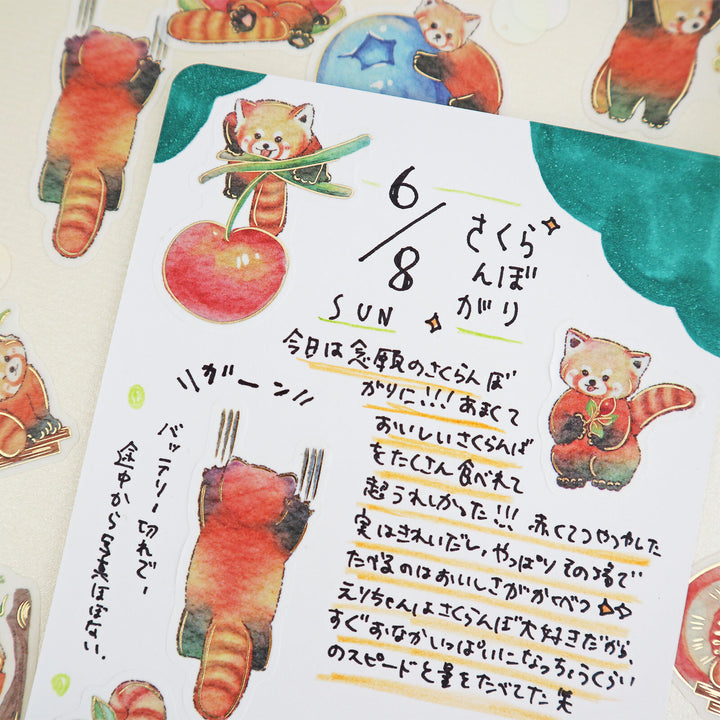 6/8
SUN
さくら
んぼ
がり
今日は念願のさくらんぼ
がりに!!! あまくて
おいしいさくらんぼ
をたくさん食べれて
超うれしかった!!! 赤くてつやつやした
実はきれいだし、やっぱりその場で
たべるのはおいしさがかくべつ
えりちゃんはさくらんぼ大好きだから、
すぐおなかいっぱいになっちゃうくらい
のスピードと量をたべてた笑
ガーン
バッテリー切れでー
途中から写真はぼない.